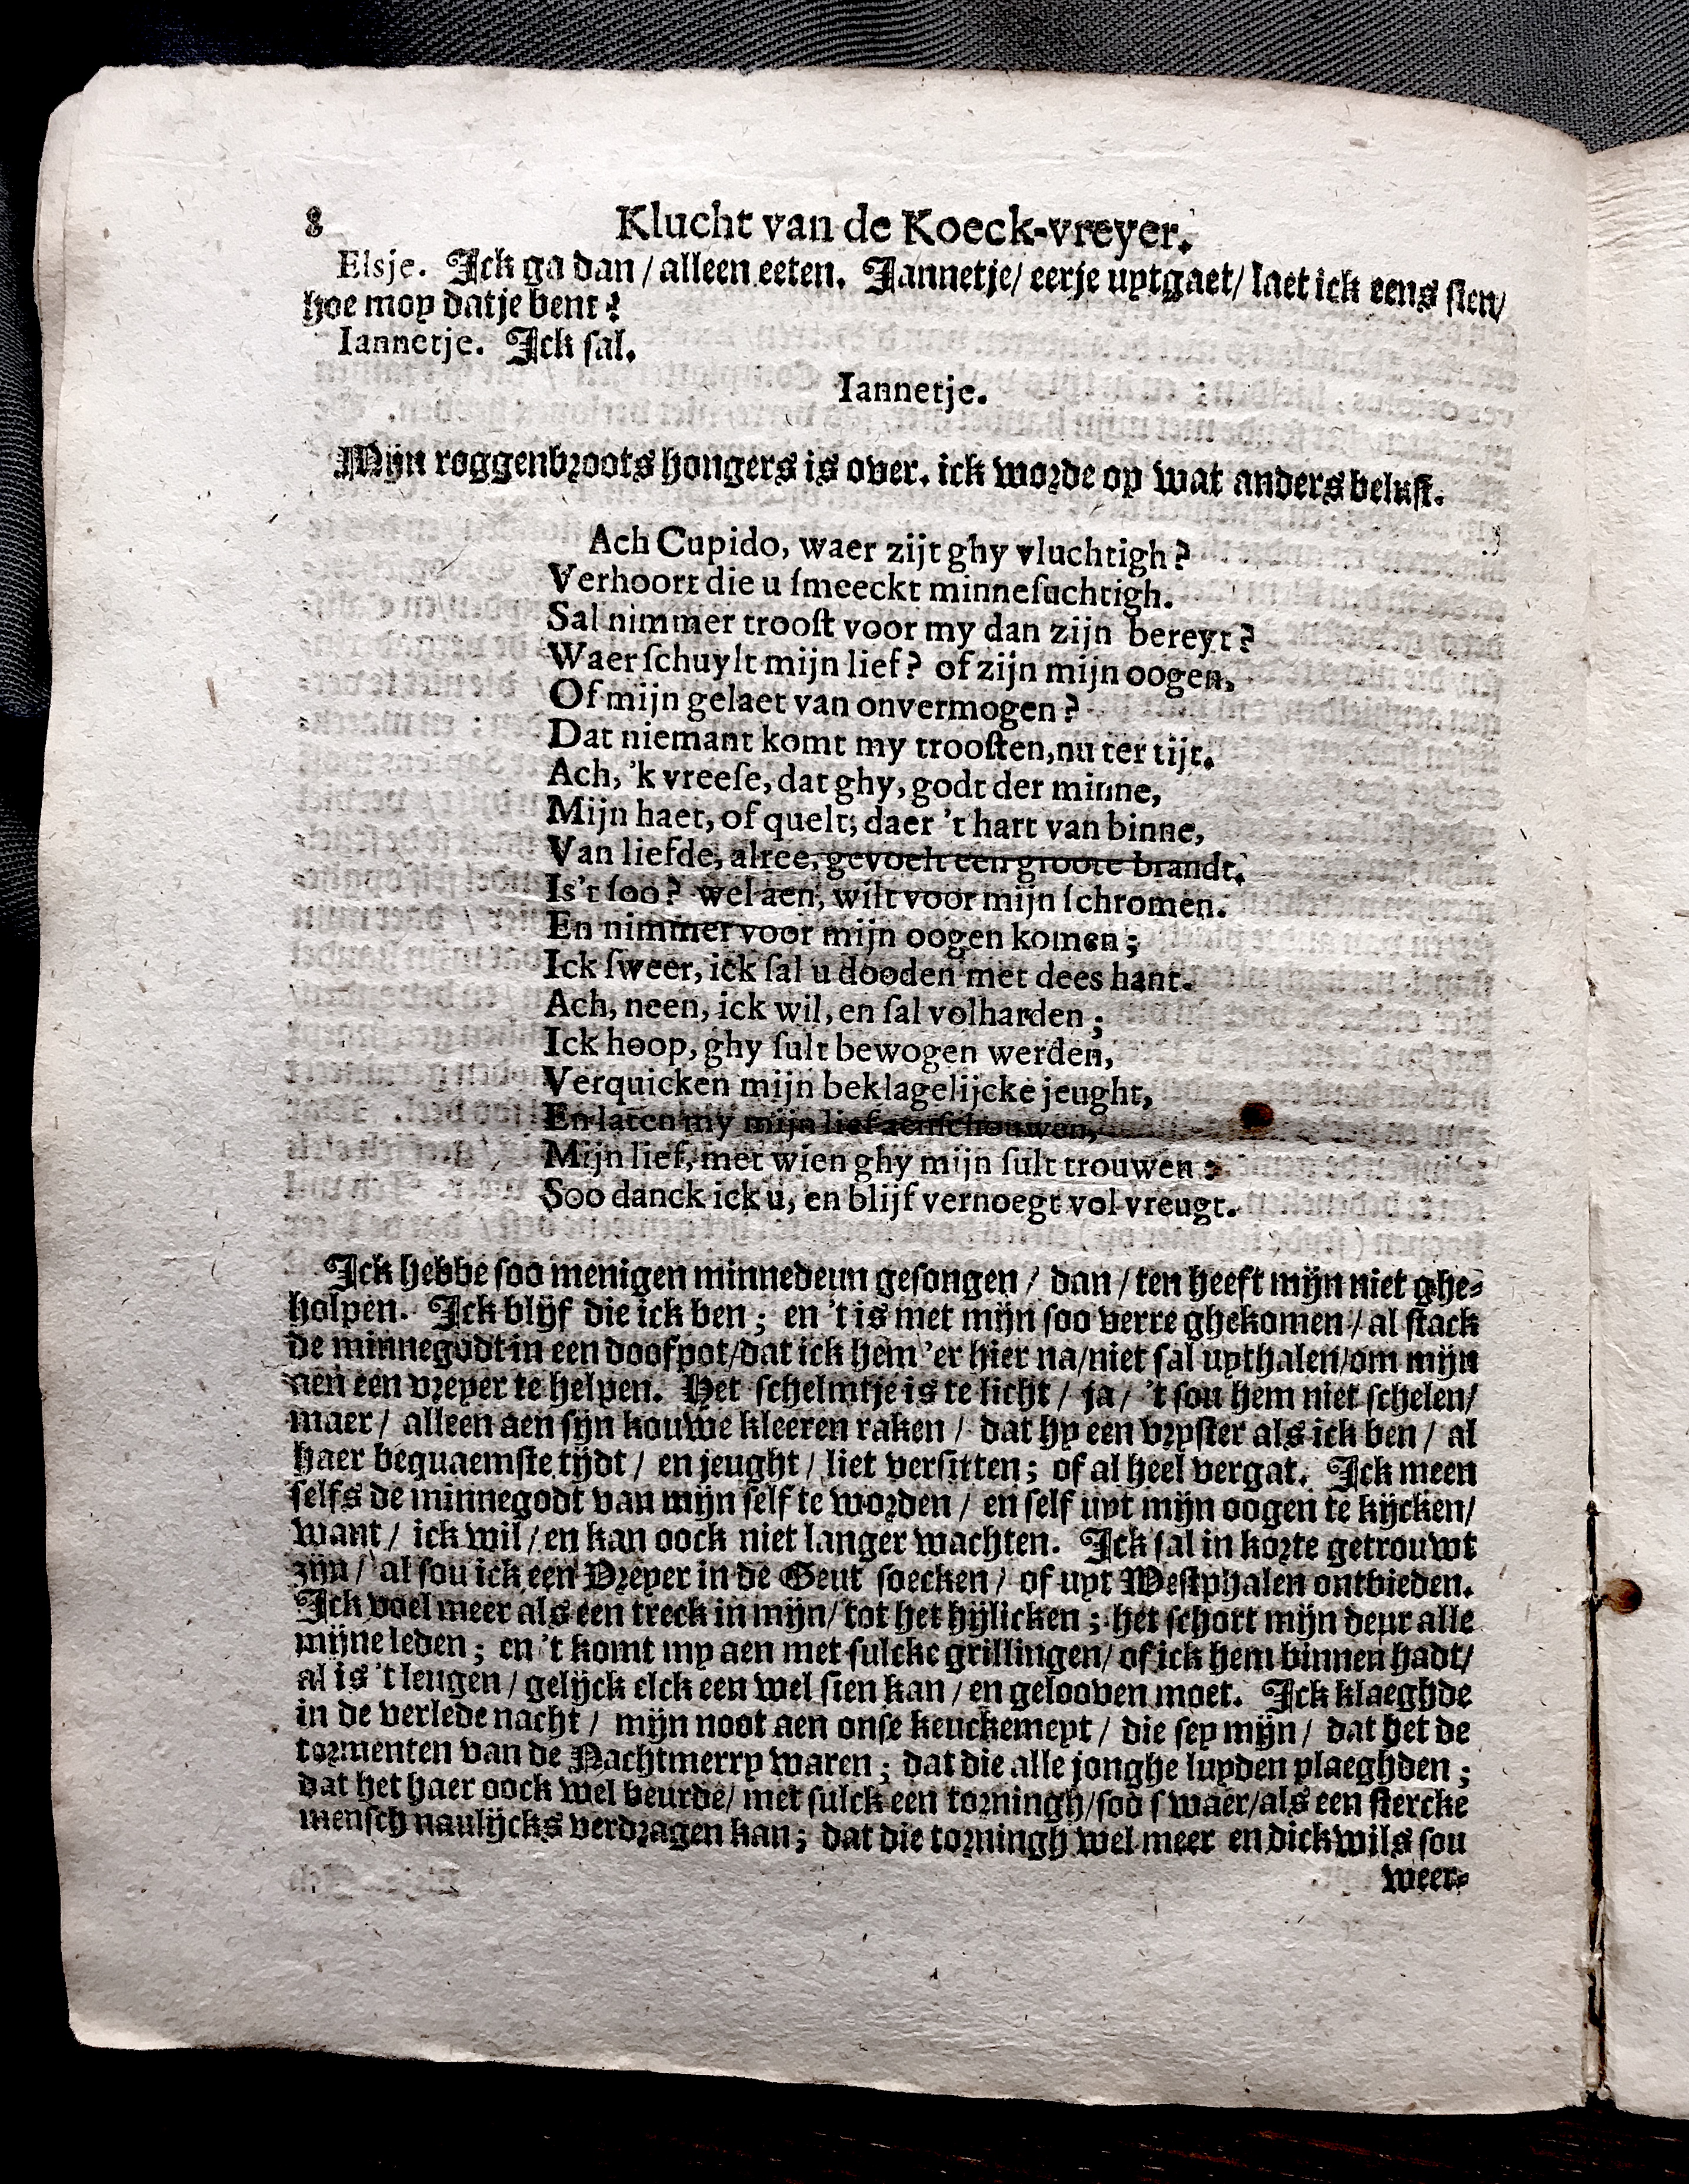 8 Klucht van de Koeck-vreyer.
Elsje. Ick ga dan / alleen eeten. Jannetje / eerje uytgaet / laet ick eens sien /
hoe moy datje bent?
Iannetje. Ick sal.
Iannetje.
Mijn roggenbroots hongers is over. ick worde op wat anders belust.
Ach Cupido, waer zijt ghy vluchtigh?
Verhoort die u ſmeeckt minneſuchtigh.
Sal nimmer trooſt voor my dan zijn bereyt?
Waer ſchuylt mijn lief? of zijn mijn oogen,
Of mijn gelaet van onvermogen?
Dat niemant komt my trooſten, nu ter tijt.
Ach, 'k vreeſe, dat ghy, godt der minne,
Mijn haet, of quelt; daer 't hart van binne,
Van liefde, alree, gevoelt een groote brandt.
Is't ſoo? wel aen, wilt voor mijn ſchromen.
En nimmer voor mijn oogen komen;
Ick ſweer, ick ſal u dooden met dees hant.
Ach, neen, ick wil, en ſal volharden;
Ick hoop, ghy ſult bewogen werden,
Verquicken mijn beklagelijcke jeught,
En laten my mijn lief aenſchouwen,
Mijn lief, met wien ghy mijn ſult trouwen:
Soo danck ick u, en blijf vernoegt vol vreugt.
Ick hebbe ſoo menigen minnedeun geſongen / dan / ten heeft mijn niet ghe-
holpen. Ick blijf die ick ben; en 't is met mijn ſoo verre ghekomen / al ſtack
de minnegodt in een doofpot / dat ick hem 'er hier na / niet ſal uythalen / om mijn
aen een vreyer te helpen. Het ſchelmtje is te licht / ja / 't ſou hem niet ſchelen /
maer / alleen aen ſijn kouwe kleeren raken / dat hy een vryſter als ick ben / al
haer bequaemſte tijdt / en jeught / liet verſitten; of al heel vergat. Ick meen
ſelfs de minnegodt van mijn ſelf te worden / en ſelf uyt mijn oogen te kijcken /
want / ick wil / en kan oock niet langer wachten. Ick ſal in korte getrouwt
zijn / al ſou ick een Vreyer in de Geut ſoecken / of uyt Weſtphalen ontbieden.
Ick voel meer als een treck in mijn / tot het hijlicken; het ſchort mijn deur alle
mijne leden; en 't komt my aen met ſulcke grillingen / of ick hem binnen hadt /
al is 't leugen / gelijck elck een wel ſien kan / en gelooven moet. Ick klaeghde
in de verlede nacht / mijn noot aen onſe keuckemeyt / die ſey mijn / dat het de
tormenten van de Nachtmerry waren; dat die alle jonghe luyden plaeghden;
dat het haer oock wel beurde / met ſulck een torningh / ſoo ſwaer / als een ſtercke
menſch naulijcks verdragen kan; dat die torningh wel meer en dickwils ſou
weer-